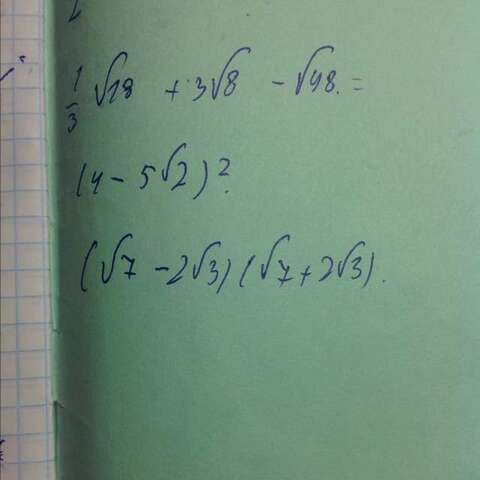 1/3 √18 + 3√8 - √98. =
(4 - 5√2)².
(√7 - 2√3)(√7 + 2√3).